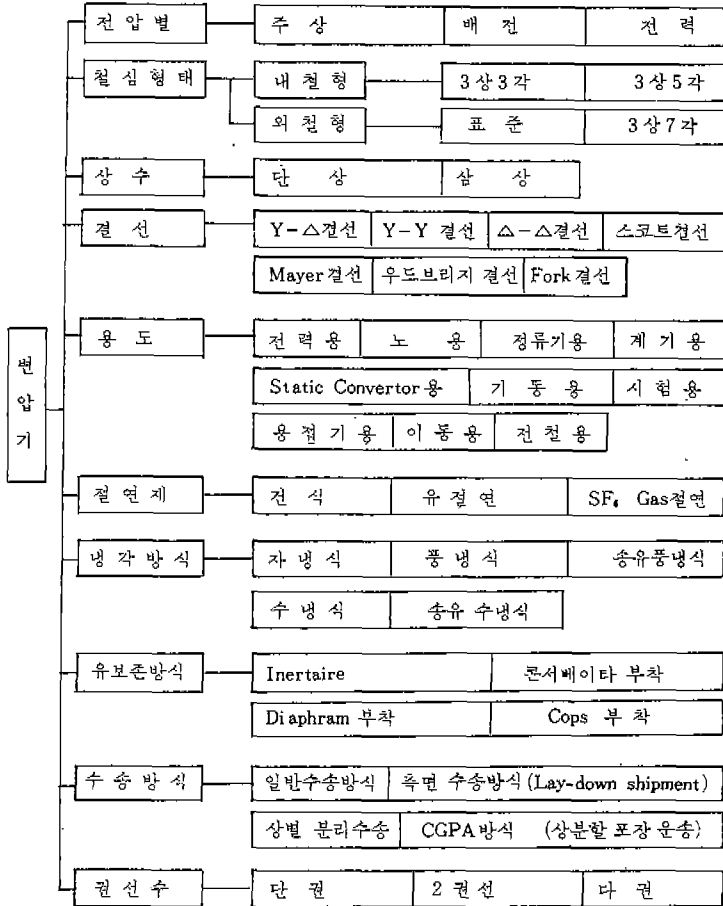 전압별 주상 배전 전력
철심형태 내철형 3상3각 3상5각
외철형 표준 3상7각
상수 단상 삼상
결선 Y-△결선 Y-Y 결선 △-△결선 스코트결선
Mayer결선 우드브리지 결선 Fork결선
변압기
용도 전력용 노용 정류기용 계기용
Static Convertor용 기동용 시험용
용접기용 이동용 전철용
절연재 건식 유절연 SF₆ Gas절연
냉각방식 자냉식 풍냉식 송유풍냉식
수냉식 송유 수냉식
유보존방식 Inertaire 콘서베이타 부착
Diaphram 부착 Cops 부착
수송방식 일반수송방식 측면 수송방식(Lay-down shipment)
상별 분리수송 CGPA방식 (상분할 포장 운송)
권선수 단권 2권선 다권